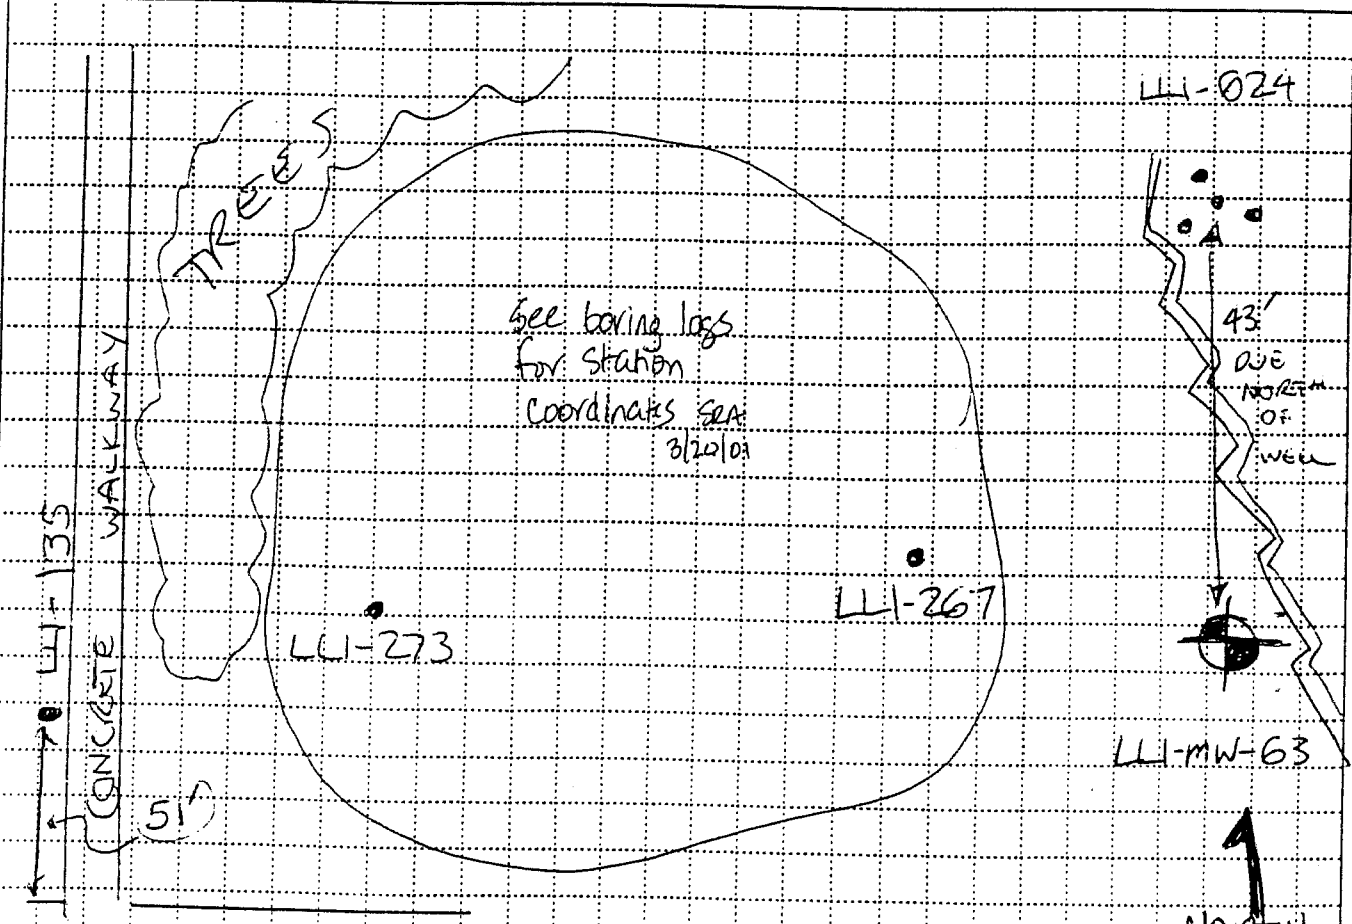 LL1-024
TREES
See boring logs
for station
coordinates SRA
3/20/01
43'
DUE
NORTH
OF
WELL
CONCRETE WALKWAY
LL1-135
LL1-267
LL1-273
LL1-MW-63
51'
NORTH